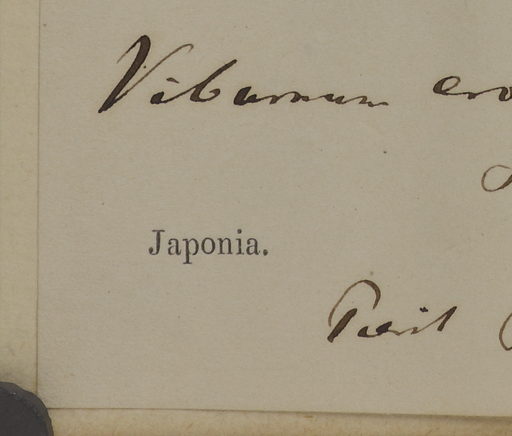 Viburnum ero
Japonia.